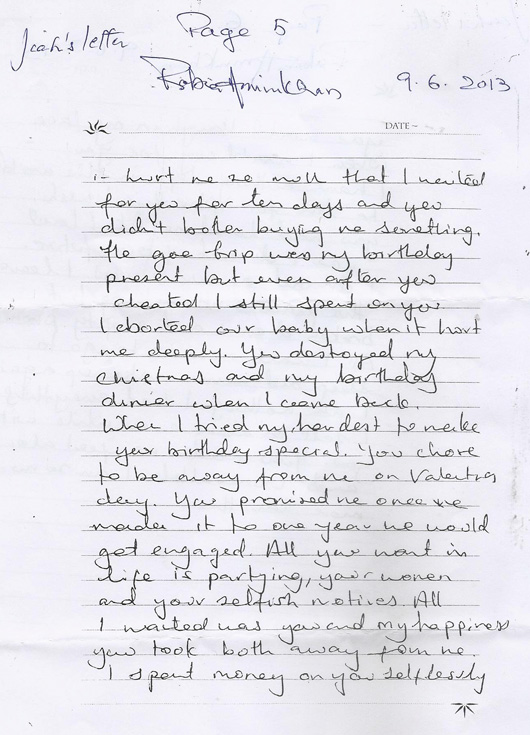 Page 5
Jiah's letter
Rabia Amin Khan
9.6.2013
DATE~
it hurt me so much that I waited
for you for ten days and you
didn't bother buying me something.
The goa trip was my birthday
present but even after you
cheated I still spent on you
I aborted our baby when it hurt
me deeply. You destroyed my
christmas and my birthday
dinner when I came back.
When I tried my hardest to make
your birthday special. You chose
to be away from me on Valentines
day. You promised me once we
made it to one year we would
get engaged. All you want in
life is partying, your women
and your selfish motives. All
I wanted was you and my happiness
you took both away from me.
I spent money on you selflessly